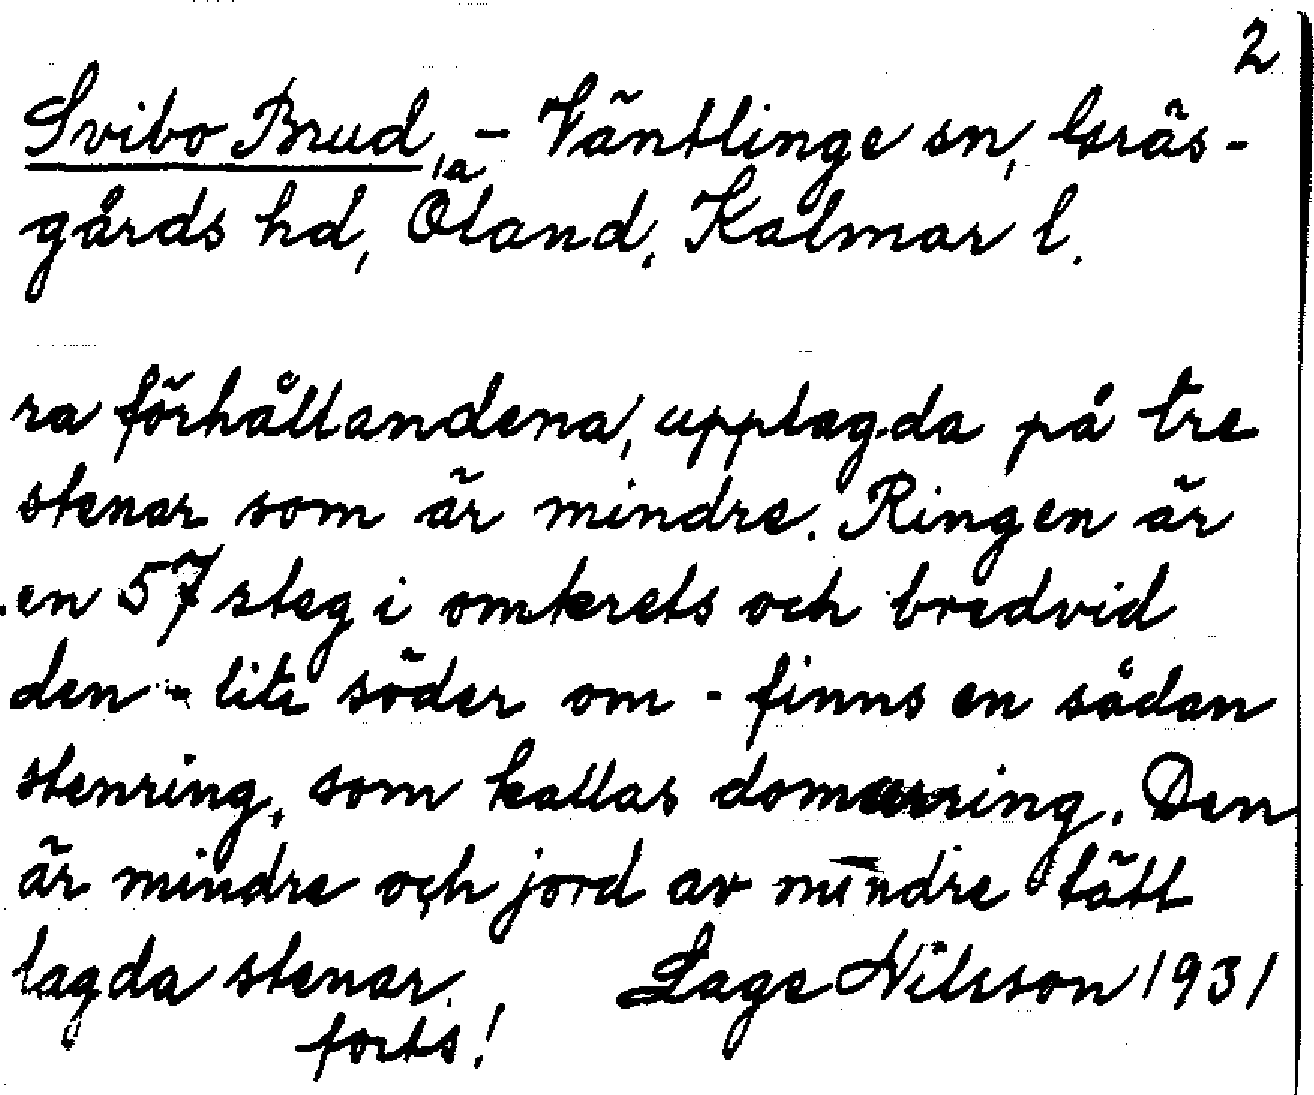 2
Svibo Brud,a - Väntlinge sn, Gräs-
gårds hd, Öland, Kalmar l.
ra förhållandena, upplagda på tre
stenar som är mindre. Ringen är
en 57 steg i omkrets och bredvid
den - lite söder om - finns en sådan
stenring, som kallas domarring. Den
är mindre och jord av mindre tätt
lagda stenar. Lage Nilsson 1931
forts!